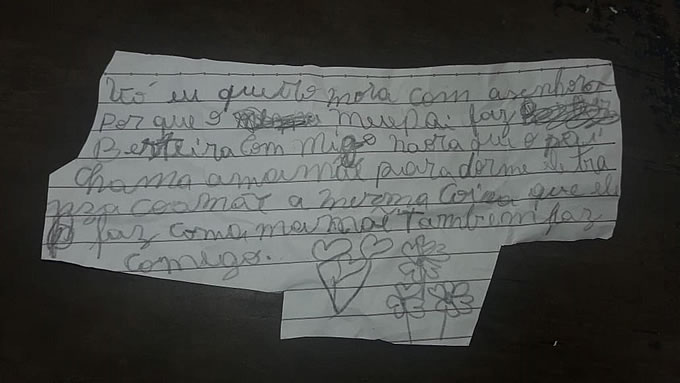 Vó eu quero mora com a senhora
Por que o meu pai faz
Besteira com migo na ora que o pai
chama a mamãe para dorme
a mesma coisa que ele
faz com a mamãe tambem faz
comigo.